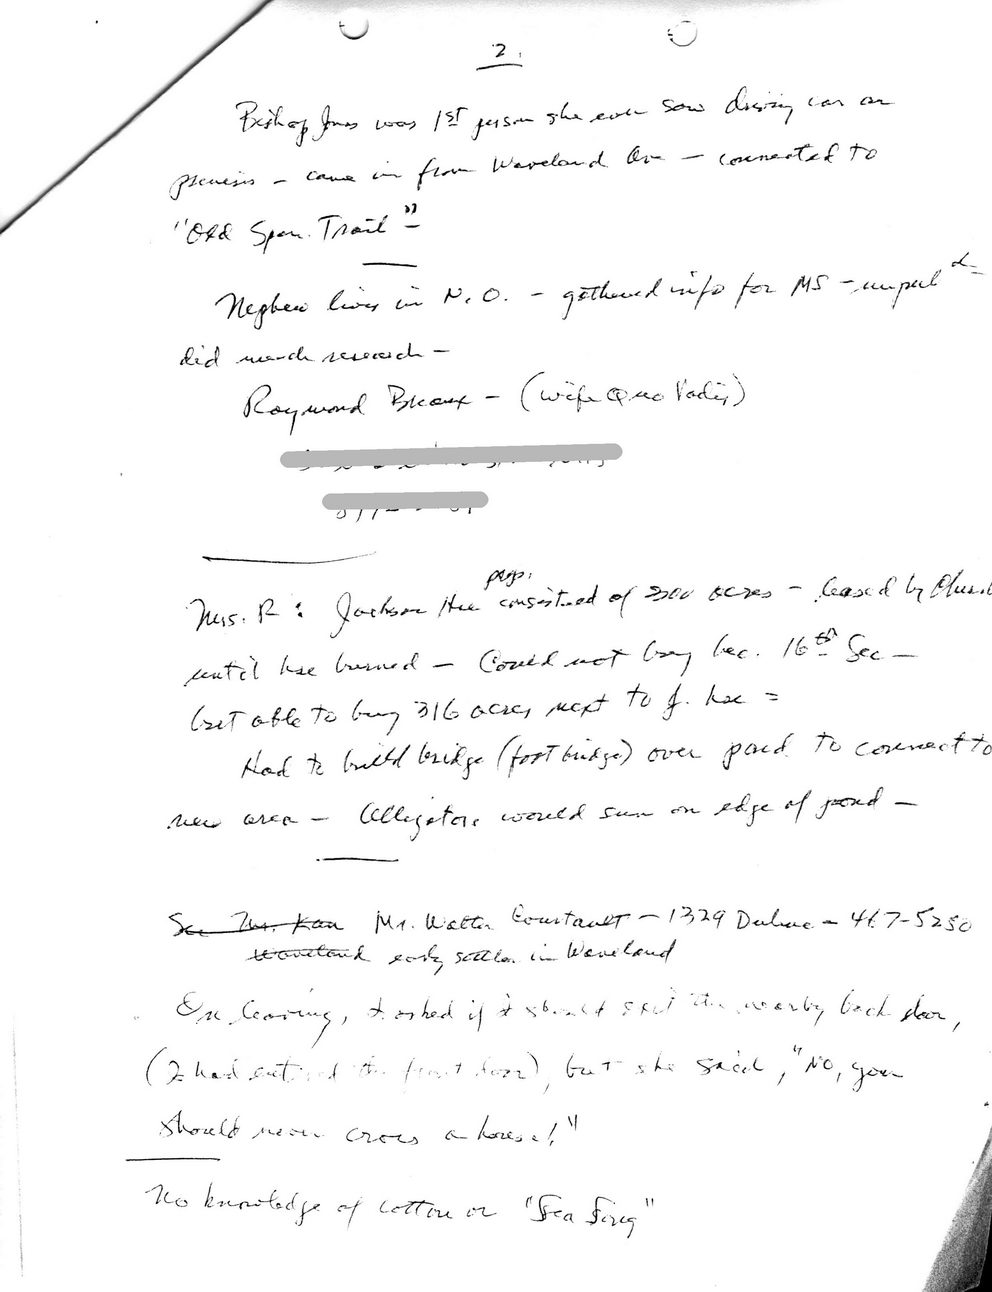 2.
Bishop Jones was 1st person she ever saw driving car on
premises - came in from Waveland Ave - connected to
"Old Span. Trail" -
Nephew lives in N.O. - gathered info for MS - unpubl
did much research -
Raymond Breaux - (wife Quo Vadis)
props.
Mrs. R: Jackson Hse consisted of acres - leased by
until hse burned - Could not buy bec. 16th Sec -
but able to buy 316 acres next to J. hse =
Had to build bridge (foot bridge) over pond to connect to
new area - Alligators would sun on edge of pond -
See Mr. Kau Mr. Walter - 1329 - 467-5250
Waveland early settler in Waveland
On leaving, I asked if I should exit the nearby back door,
(I had entered the front door), but she said, "No, you
should never cross a house!"
No knowledge of cotton or "Sea Sing"